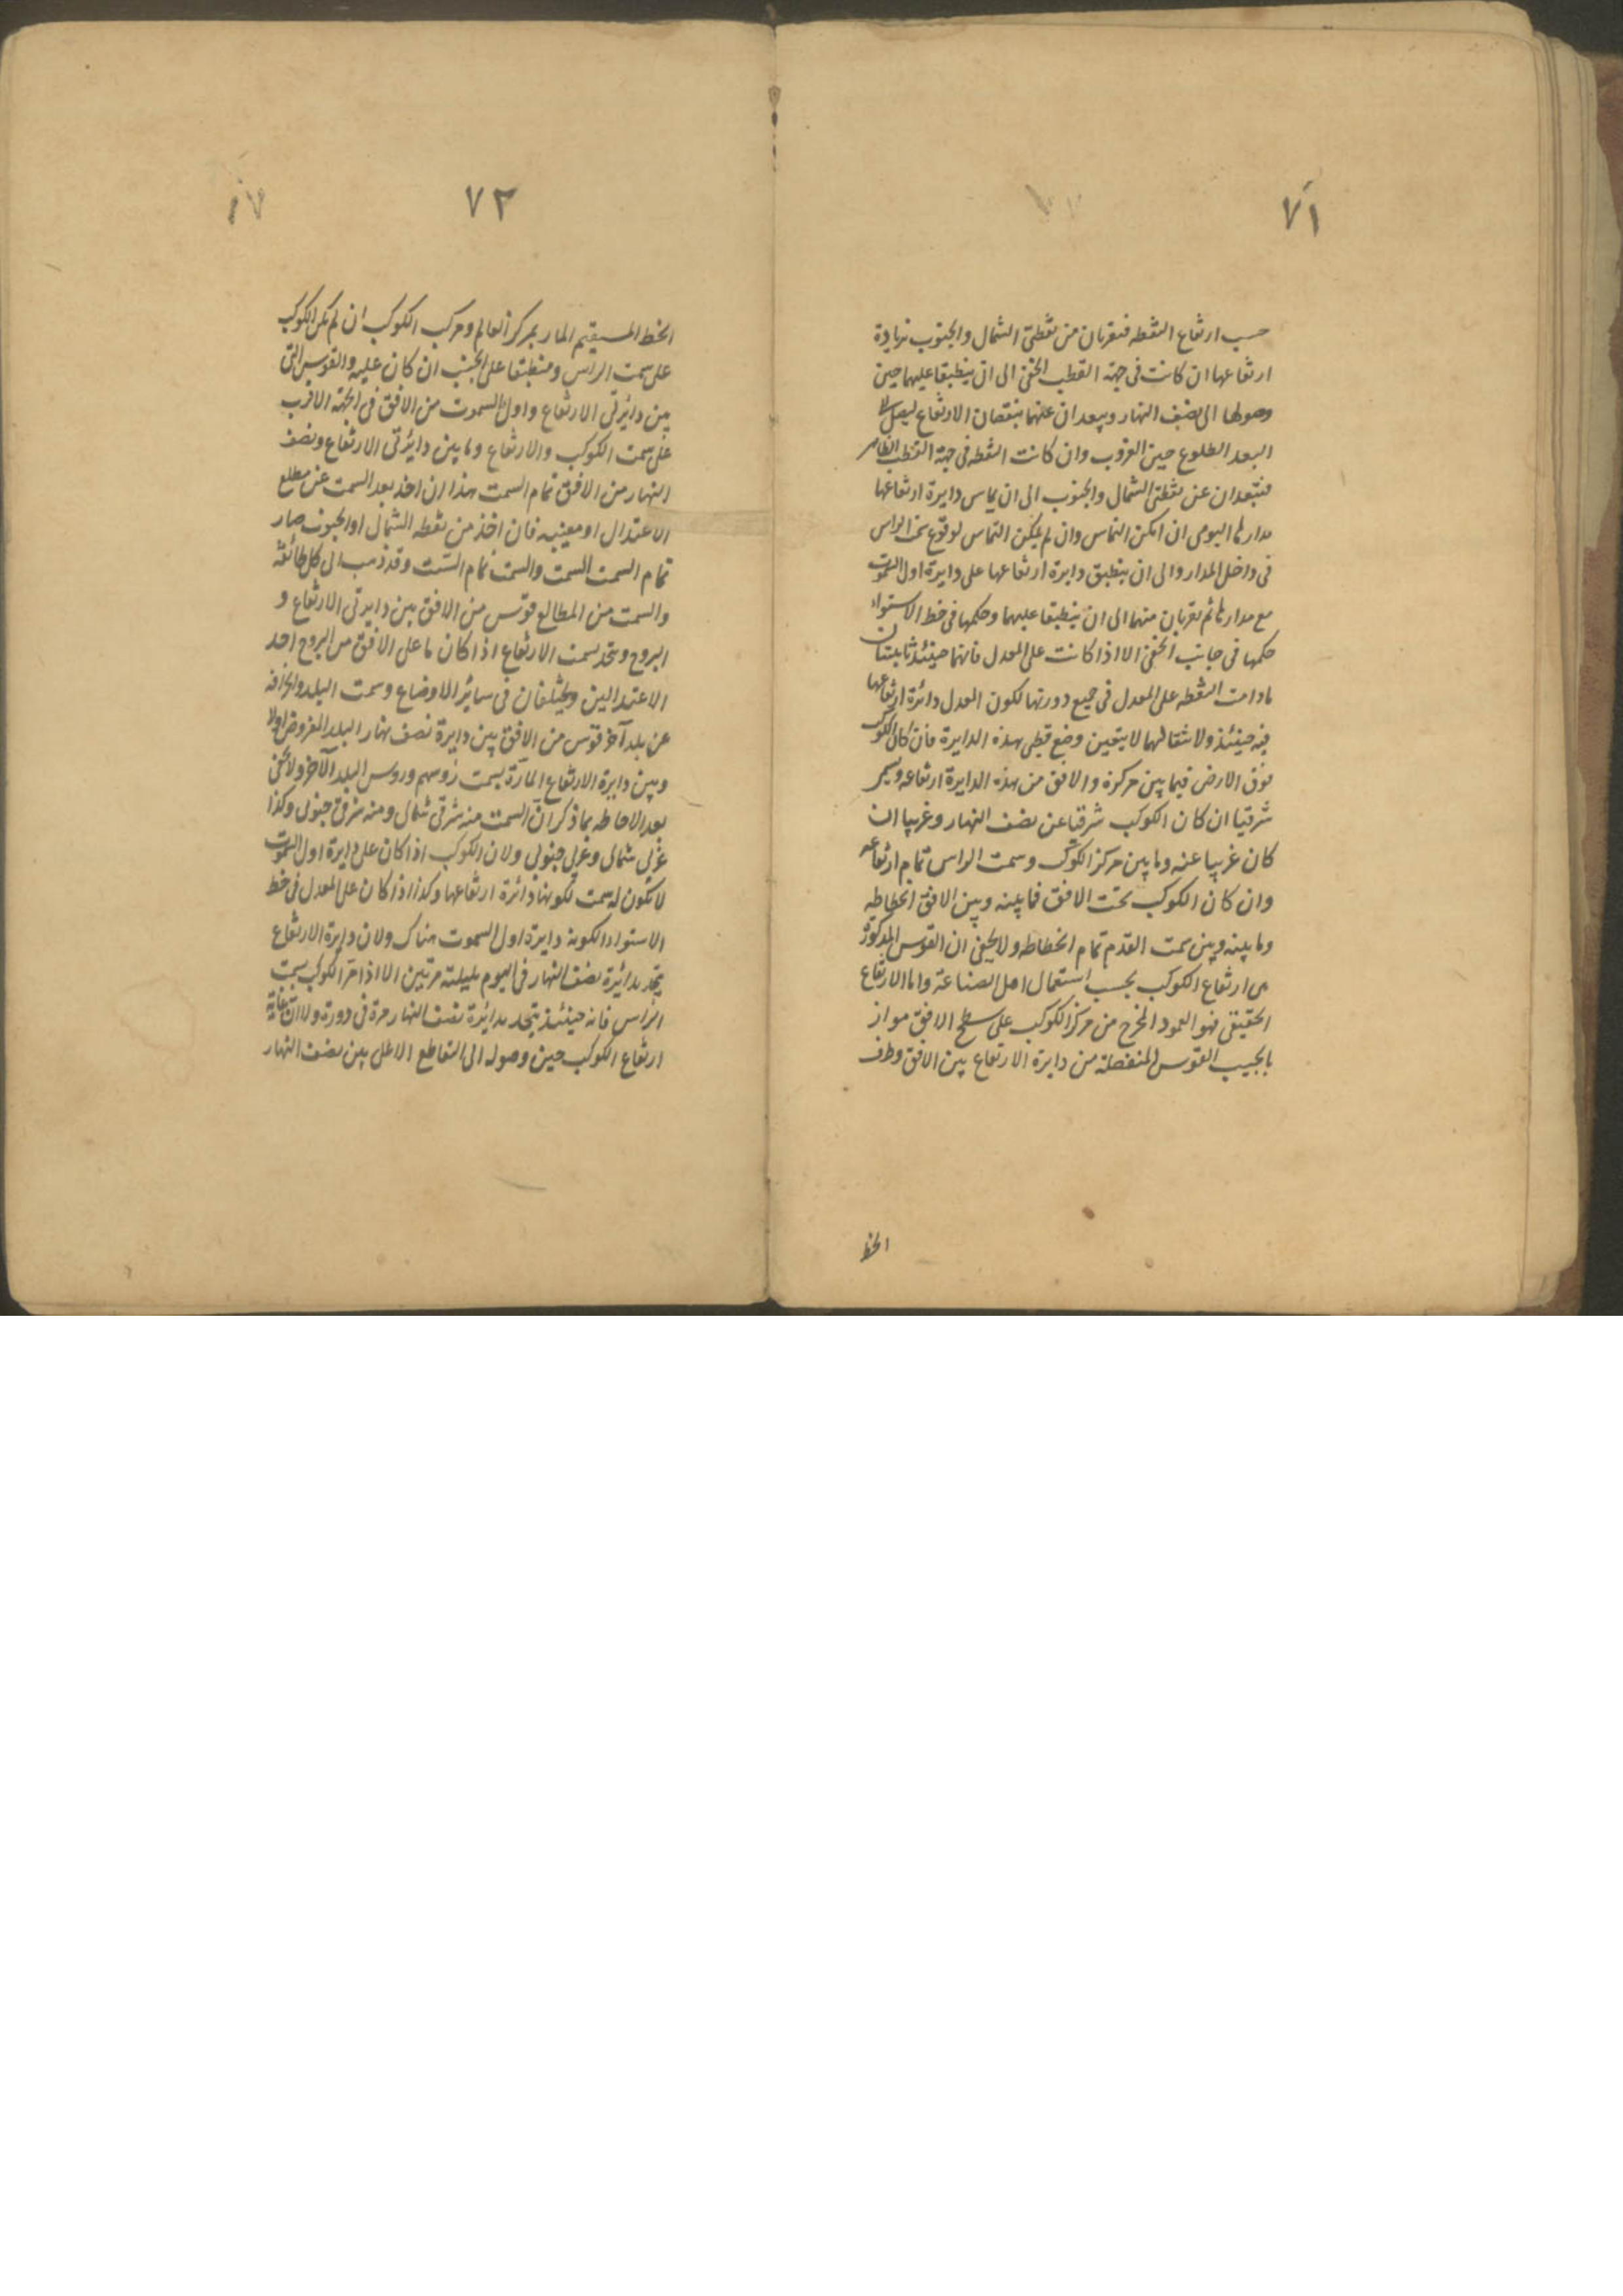 ٧١
حسب ارتفاع النقطه فتقربان من نقطتى الشمال والجنوب بزيادة
ارتفاعها ان كانت فى جهة القطب الخفى الى ان ينطبقا عليهما حين
وصولها الى نصف النهار ويبعدان عنهما بنقصان الارتفاع ليصل
البعد الطلوع حين الغروب وان كانت النقطه فى جهة القطب الظاهر
فتبتعدان عن نقطتى الشمال والجنوب الى ان يماس دايرة ارتفاعها
مدارها اليومى ان امكن التماس وان لم يمكن التماس لوقوع سمت الراس
فى داخل المدار والى ان ينطبق دايرة ارتفاعها على دايرة اول السموت
مع مدارها ثم تقربان منهما الى ان ينطبقا عليهما وحكمها فى خط الاستواء
حكمها فى جانب الخفى الا اذا كانت على المعدل فانهما حينئذ ثابتتان
مادامت النقطه على المعدل فى جميع دورتها لكون المعدل دائرة ارتفاعها
فيه حينئذ ولانتقالهما لا يتعين وضع قطبى هذه الدايرة فان كان الكوكب
فوق الارض فيما بين مركزه والافق من هذه الدايرة ارتفاعه ويسمى
شرقيا ان كان الكوكب شرقيا عن نصف النهار وغربيا ان
كان غربيا عنه وما بين مركز الكوكب وسمت الراس تمام ارتفاعه
وان كان الكوكب تحت الافق فما بينه وبين الافق انحطاطه
وما بينه وبين سمت القدم تمام انحطاطه ولا يخفى ان القوس المذكورة
هى ارتفاع الكوكب بحسب استعمال اهل الصناعة واما الارتفاع
الحقيقى فهو العمود المخرج من مركز الكوكب على سطح الافق مواز
بالجيب القوس المنفصلة من دايرة الارتفاع بين الافق وطرف
الخط
٧٢
الخط المستقيم المار بمركز العالم ومركب الكوكب ان لم يكن الكوكب
على سمت الراس ومنطبقا على الجيب ان كان عليه والقوس التى
بين دائرتى الارتفاع واول السموت من الافق فى الجهة الاقرب
على سمت الكوكب والارتفاع وما بين دايرتى الارتفاع ونصف
النهار من الافق تمام السمت هذا ان اخذ بعد السمت عن مطلع
الاعتدال او مغيبه فان اخذ من نقطه الشمال او الجنوب صار
تمام السمت السمت والسمت تمام السمت وقد ذهب الى كل طائفة
والسمت من المطالع قوس من الافق بين دايرتى الارتفاع و
البروج ويتحد بسمت الارتفاع اذا كان ما على الافق من البروج احد
الاعتدالين ويختلفان فى سائر الاوضاع وسمت البلد وانحرافه
عن بلد آخر قوس من الافق بين دايرة نصف نهار البلد المفروض اولا
وبين دايرة الارتفاع المارة بسمت رؤسهم وروس البلد الآخر ولا يخفى
بعد الاحاطه بما ذكر ان السمت منه شرقى شمالى ومنه شرقى جنوبى وكذا
غربى شمالى وغربى جنوبى ولان الكوكب اذا كان على دايرة اول السموت
لا يكون له سمت لكونها دائرة ارتفاعها وكذا اذا كان على المعدل فى خط
الاستواء لكونه دايرة اول السموت هناك ولان دايرة الارتفاع
يتحد بدائرة نصف النهار فى اليوم بليلته مرتين الا اذا مر الكوكب بسمت
الراس فانه حينئذ يتحد بدائرة نصف النهار مرة فى دورة ولان غاية
ارتفاع الكوكب حين وصوله الى التقاطع الاعلى بين نصف النهار